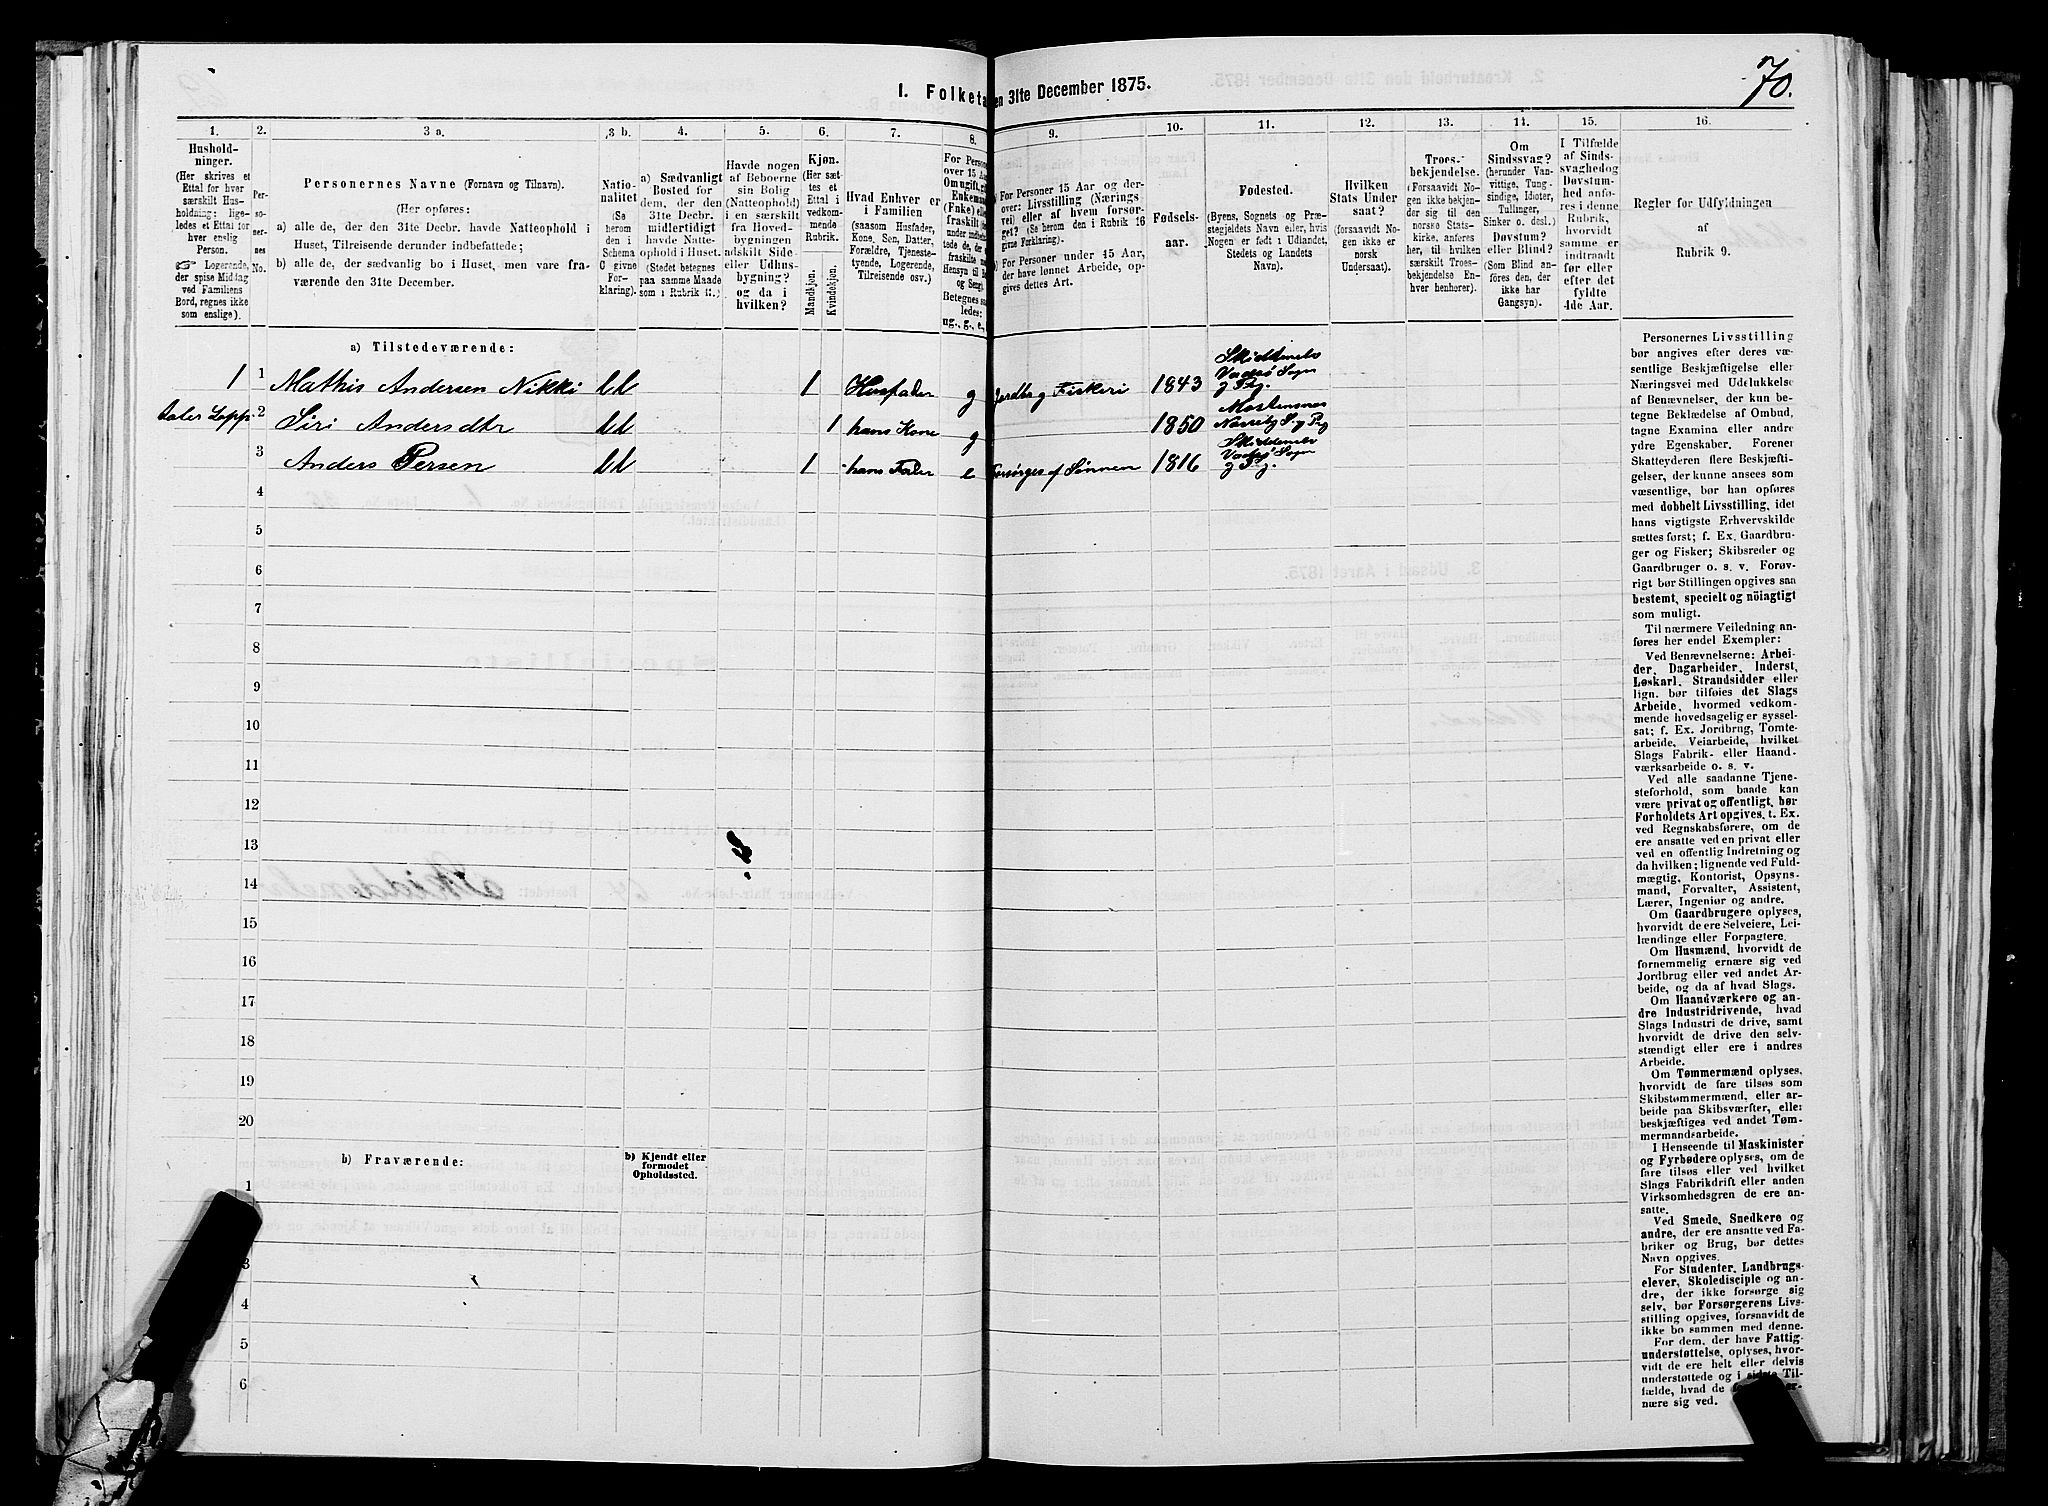 70.
1. Folketæ
en 31te December 1875.
1.
Hushold-
ninger.
(Her skrives et
Ettal for hver
særskilt Hus-
holdning; lige-
ledes et Ettal for
hver enslig
Person.
☞ Logerende,
der spise Middag
ved Familiens
Bord, regnes ikke
som enslige).
2.
Per-
so-
ner-
nes
No.
3 a.
Personernes Navne (Fornavn og Tilnavn).
(Her opføres:
a) alle de, der den 31te Decbr. havde Natteophold i
Huset, Tilreisende derunder indbefattede;
b) alle de, der sædvanlig bo i Huset, men vare fra-
værende den 31te December.
3 b.
Natio-
nalitet
(Se
herom
den i
Schema
C givne
For-
klaring).
4.
a) Sædvanligt
Bosted for
dem, der den
31te Decbr.
midlertidigt
havde Natte-
ophold i Huset.
(Stedet betegnes
paa samme Maade
som i Rubrik 11.)
5.
Havde nogen
af Beboerne
sin Bolig
(Natteophold)
i en særskilt
fra Hoved-
bygningen
adskilt Side-
eller Udhus-
bygning?
og da i
hvilken?
6.
Kjøn.
(Her sæt-
tes et
Ettal i
vedkom-
mende
Rubrik.
Mandkjøn.
Kvindekjøn.
7.
Hvad Enhver er
i Familien
(saasom Husfader,
Kone, Søn, Datter,
Forældre, Tjeneste-
tyende, Logerende,
Tilreisende osv.)
8.
For Persone
over 15 Aar
Om ugift, gi
Enkemand
(Fnke) elle
fraskilt
Betegnes saa
ledes:
ug., g., e.,
9.
a) For Personer 15 Aar og der-
over: Livsstilling (Nærings
vei) eller af hvem forsør-
get? (Se herom den i Rubrik 16
givne Forklaring).
b) For Personer under 15 Aar,
der have lønnet Arbeide, op-
gives dettes Art.
10.
Fødsels-
aar.
11.
Fødested.
(Byens, Sognets og Præ-
stegjeldets Navn eller, hvis
Nogen er født i Udlandet,
Stedets og Landets
Navn).
12.
Hvilken
Stats Under
saat?
(forsaavidt No-
gen ikke er
norsk
Undersaat).
13.
Troes-
bekjendelse.
(Forsaavidt No-
gen ikke bekjen-
der sig til den
norske Stats-
kirke, anføres
her, til hvilken
særskilt Troes-
bekjendelse En-
hver henhører).
14.
Om
Sindssvag?
(herunder Van-
vittige, Tung-
sindige, Idioter,
Tullinger,
Sinker o. desl.)
Døvstum?
eller Blind?
(Som Blind an-
føres den, der
ikke har
Gangsyn).
15.
I Tilfælde
af Sinds-
svaghed og
Døvstum-
hed anfø-
res i denne
Rubrik,
hvorvidt
samme er
indtraadt
før eller
efter det
fyldte
4de Aar.
16.
Regler for Udfyldningen
af
Rubrik 9.
a) Tilstedeværende:
1 1 Mathis Andersen Nikki 1 Husfader g Jordbr g Fiskeri 1843 Vadsø Sogn
taler Lapp. 2 Siri Andersdtr 1 hans Kone g 1850
3 Anders Persen 1 hans Fader e Forsørges af Sønnen 1816 Vadsø Sogn
4
5
6
7
8
9
10
11
12
13
14
15
16
17
18
19
20
b) Fraværende:
b) Kjendt eller
formodet
Opholdssted.
1
3
4
5
6
Personernes Livsstilling
bør angives efter deres væ-
sentlige Beskjæftigelse eller
Næringsvei med Udelukkelse
af Benævnelser, der kun be-
tegne Beklædelse af Ombud,
tagne Examina eller andre
ydre Egenskaber. Forener
Skatteyderen flere Beskjæfti-
gelser, der kunne ansees som
væsentlige, bør han opføres
med dobbelt Livsstilling, idet
hans vigtigste Erhvervskilde
sættes først; f. Ex. Gaardbru-
ger og Fisker; Skibsreder og
Gaardbruger o. s. v. Forøv-
rigt bør Stillingen opgives saa
bestemt, specielt og nöiagtigt
som muligt.
Til nærmere Veiledning an-
føres her endel Exempler:
Ved Benævnelserne: Arbei-
der, Dagarbeider, Inderst,
Løskarl, Strandsidder eller
lign. bør tilføies det Slags
Arbeide, hvormed vedkom-
mende hovedsagelig er syssel-
sat; f. Ex. Jordbrug, Tomte-
arbeide, Veiarbeide, hvilket
Slags Fabrik- eller Haand-
værksarbeide o. s. v.
Ved alle saadanne Tjene-
steforhold, som baade kan
være privat og offentligt, bør
Forholdets Art opgives. t. Ex.
ved Regnskabsførere, om de
ere ansatte ved en privat eller
ved en offentlig Indretning og
da hvilken; lignende ved Fuld-
mægtig, Kontorist, Opsyns-
mand, Forvalter, Assistent,
Lærer, Ingeniør og andre.
Om Gaardbrugere oplyses,
hvorvidt de ere Selveiere, Lei-
lændinge eller Forpagtere.
Om Husmænd, hvorvidt de
fornemmelig ernære sig ved
Jordbrug eller ved andet Ar-
beide, og da af hvad Slags.
Om Haandværkere og an-
dre Industridrivende, hvad
Slags Industri de drive, samt
hvorvidt de drive den selv-
stændigt eller ere i andres
Arbeide.
Om Tømmermænd oplyses,
hvorvidt de fare tilsøs som
Skibstømmermænd, eller ar-
beide paa Skibsværfter, eller
beskjæftiges ved andet Tøm-
mermandsarbeide.
I Henseende til Maskinister
og Fyrbødere oplyses, om de
fare tilsøs eller ved hvilket
Slags Fabrikdrift eller anden
Virksomhedsgren de ere an-
satte.
Ved Smede, Snedkere og
andre, der ere ansatte ved Fa-
briker og Brug, bør dettes
Navn opgives.
For Studenter, Landbrugs-
elever, Skoledisciple og an-
dre, der ikke forsørge sig
selv, bør Forsørgerens Livs-
stilling opgives, forsaavidt de
ikke bo sammen med denne.
For dem, der have Fattig-
understøttelse, oplyses, hvor-
vidt de ere helt eller delvis
understøttede og i sidste Til-
fælde, hvad de
nære sig ved.